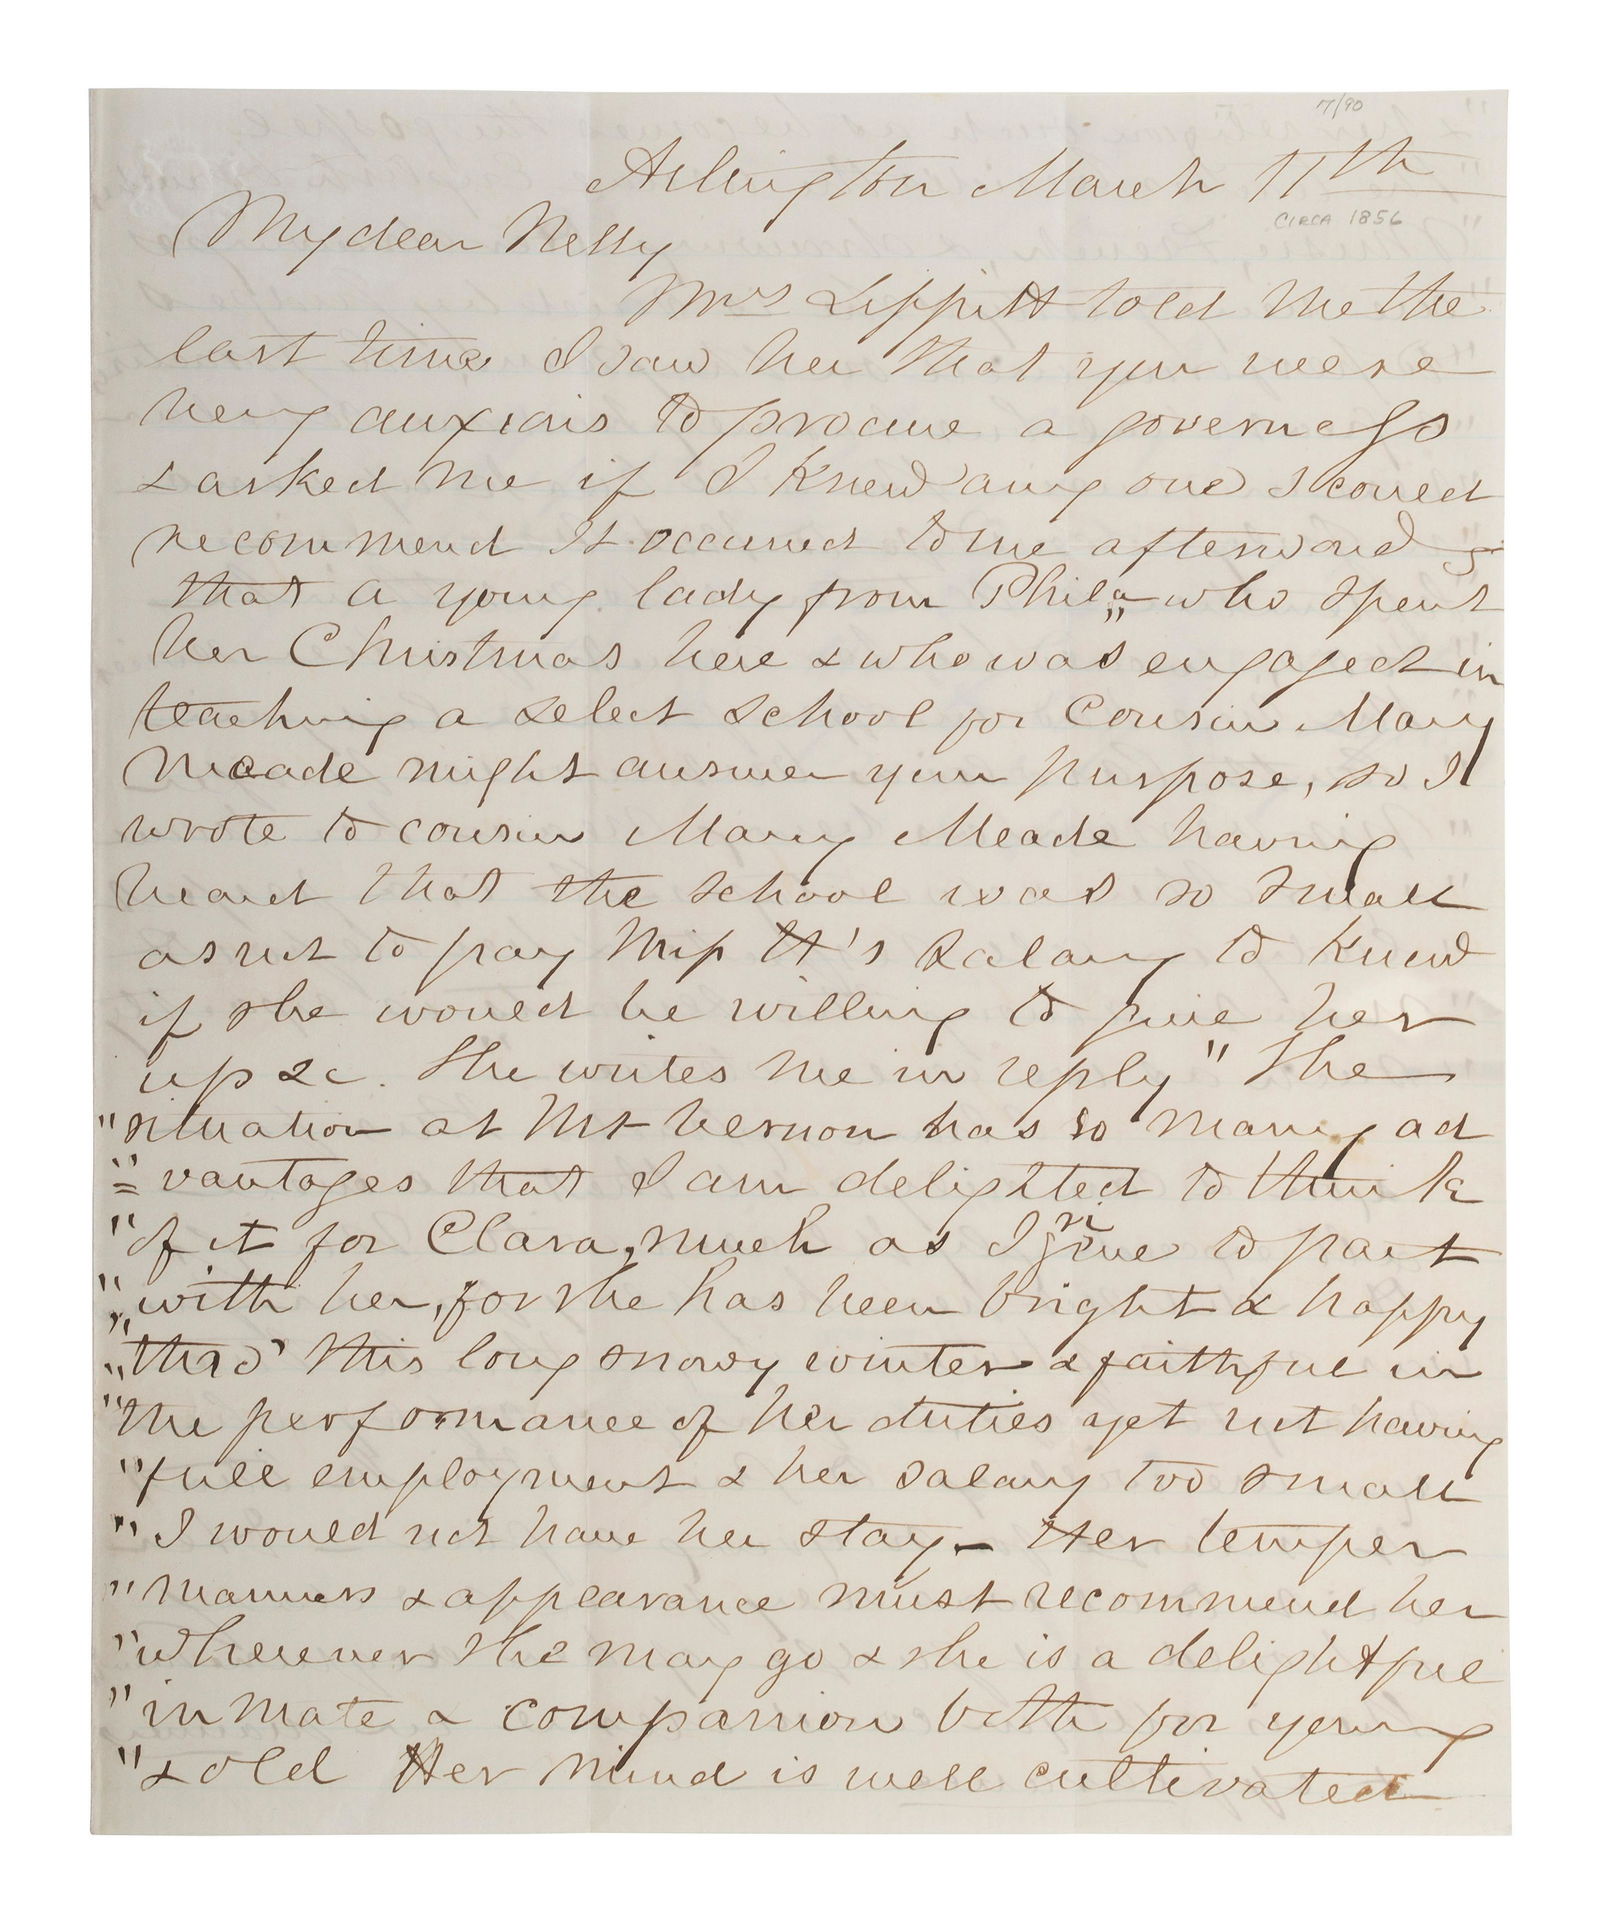 7/90
Arlington March 11th
CIRCA 1856
My dear Nelly
Mrs Lippitt told me the
last time I saw her that you were
very anxious to procure a governess
& asked me if I knew any one I could
recommend It occurred to me afterwards
that a young lady from Phila who spent
her Christmas here & who was engaged in
teaching a select school for Cousin Mary
Meade might answer your purpose, so I
wrote to cousin Mary Meade having
heard that the school was so small
as not to pay Miss H's salary to know
if she would be willing to give her
up &c. She writes me in reply " The
" situation at Mt Vernon has so many ad
" = vantages that I am delighted to think
" of it for Clara, much as I grieve to part
" with her, for she has been bright & happy
" thro' this long snowy winter & faithful in
" the performance of her duties yet not having
" full employment & her salary too small
" I would not have her stay - Her temper
" manners & appearance must recommend her
" wherever she may go & she is a delightful
" inmate & companion both for young
" & old Her mind is well cultivated